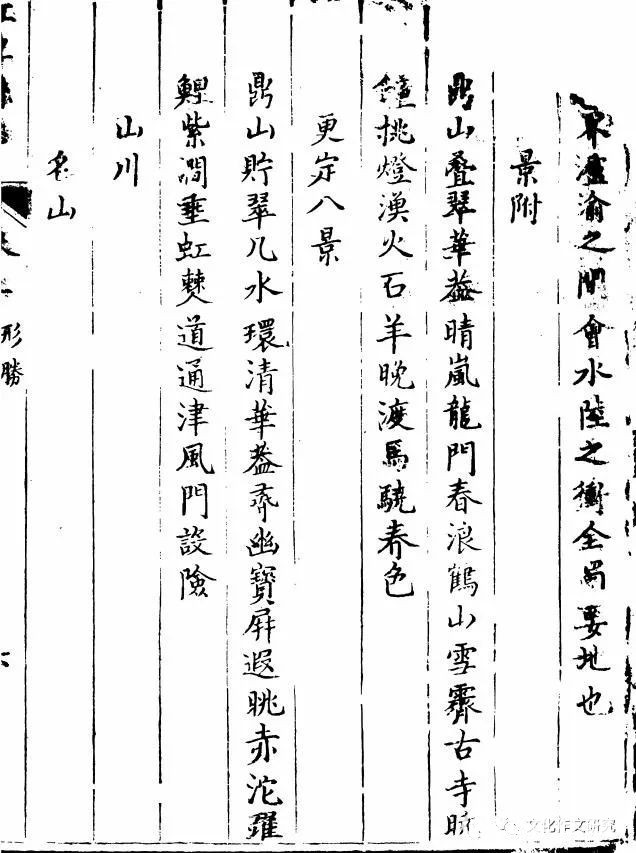 瀘渝之間會水陸之衝全蜀要地也
景附
鼎山叠翠華葢晴嵐龍門春浪鶴山雪霽古寺
鐘挑燈漢火石羊晚渡馬驍春色
更定八景
鼎山貯翠几水環清華葢尋幽寶屏遐眺赤沱躍
鯉紫澗垂虹僰道通津風門設險
山川
名山
形勝
文化作文研究